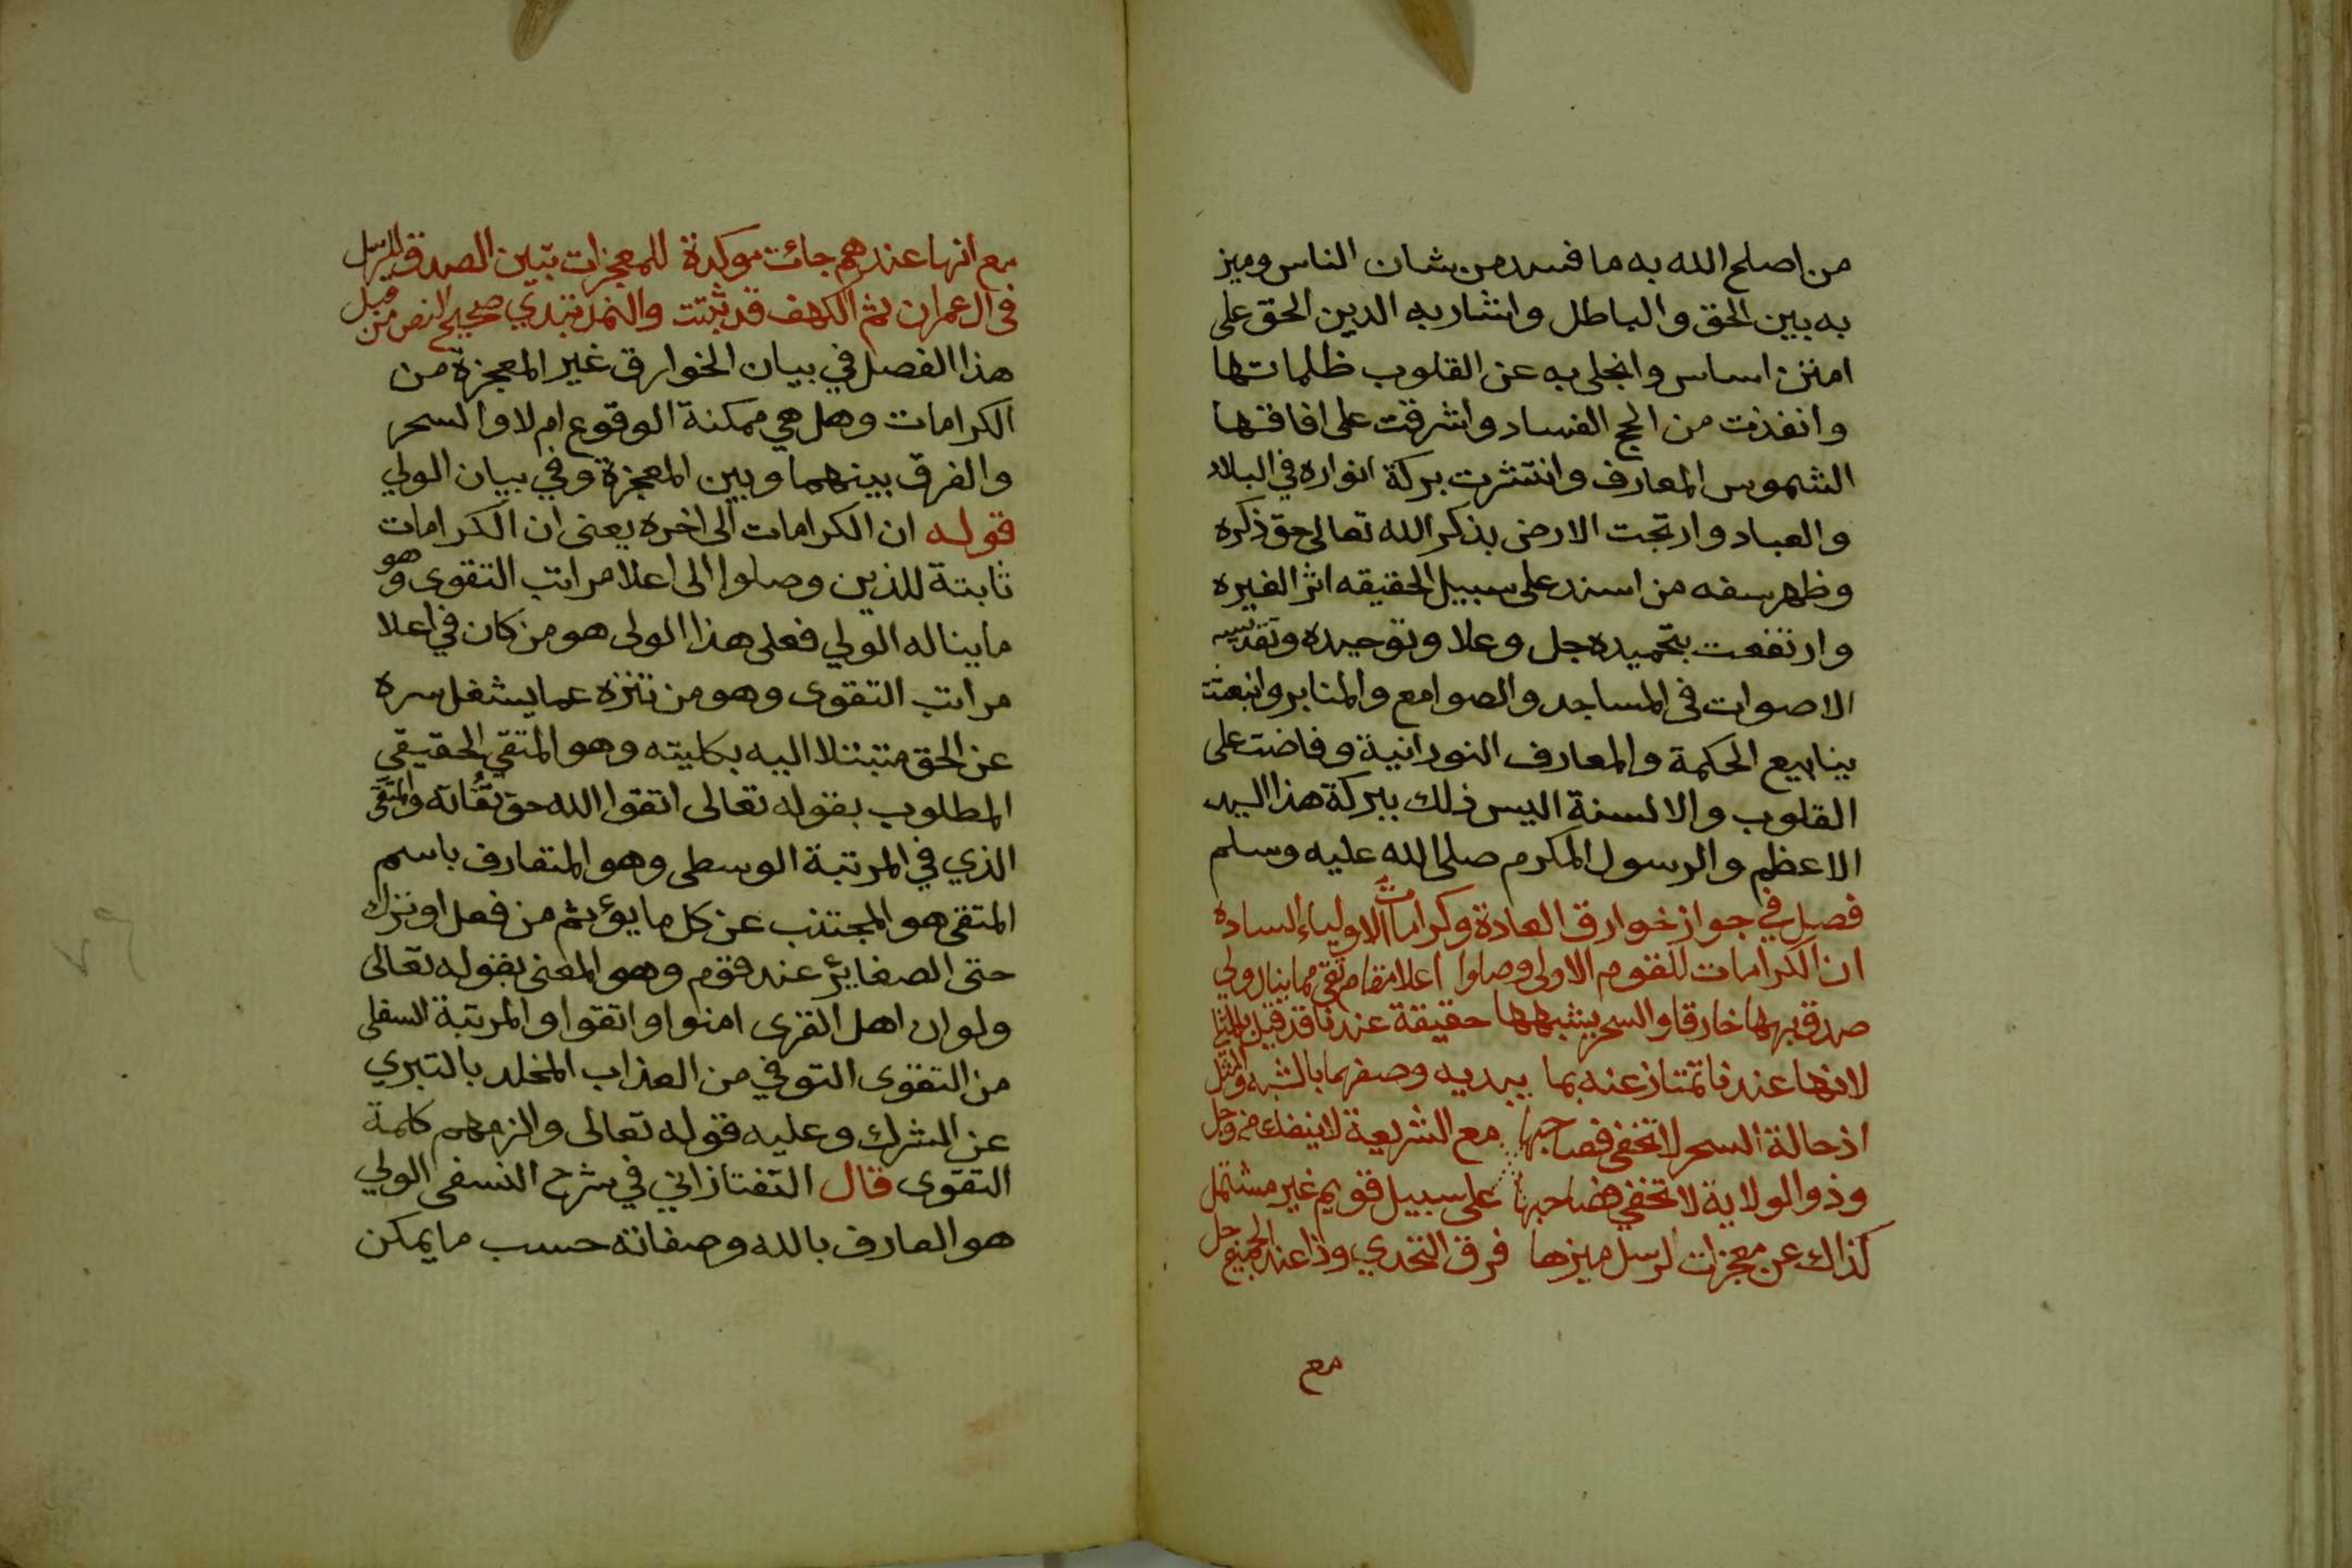 من اصلح الله به ما فسد من شان الناس وميز
به بين الحق والباطل واشار به الدين الحق على
امتن اساس وانجلى به عن القلوب ظلماتها
وانفذت من الحج الفساد واشرقت على افاقها
الشموس المعارف وانتشرت بركة انواره في البلاد
والعباد وارتجت الارض بذكر الله تعالى حق ذكره
وظهر سفه من اسند على سبيل الحقيقه اثرا لغيره
وارتفعت بتحميده جل وعلا وتوحيده وتقديسه
الاصوات في المساجد والصوامع والمنابر وانبعثت
ينابيع الحكمة والمعارف النورانية وفاضت على
القلوب والالسنة اليس ذلك ببركة هذا السيد
الاعظم والرسول المكرم صلى الله عليه وسلم
فصل في جواز خوارق العادة وكرامات الاولياء الساده
ان الكرامات للقوم الاولى وصلوا اعلا مقام تقى مما ينال ولي
صدق بها خارقا والسحر يشبهها حقيقة عندنا قد قيل بالمثل
لانها عندنا تمتاز عنه بما يبديه وصفهما بالشبه والمثل
اذ حالة السحر لا تخفى فصاحبها مع الشريعة لا ينفك في وجل
وذو الولاية لا تخفي فصاحبها على سبيل قويم غير مشتمل
كذاك عن معجزات الرسل ميزها فرق التحدي وذا عند الجميع جل
مع
مع انها عندهم جائت موكدة للمعجزات تبين الصدق للرسل
في ال عمران ثم الكهف قد ثبتت والنمل تبدي صحيح النص من قبل
هذا الفصل في بيان الخوارق غير المعجزة من
الكرامات وهل هي ممكنة الوقوع ام لا والسحر
والفرق بينهما وبين المعجزة وفي بيان الولي
قوله ان الكرامات الى اخره يعنى ان الكرامات
ثابتة للذين وصلوا الى اعلا مراتب التقوى وهو
ما يناله الولي فعلى هذا الولى هو من كان في اعلا
مراتب التقوى وهو من تنزه عما يشغل سره
عن الحق متبتلا اليه بكليته وهو المتقي الحقيقي
المطلوب بقوله تعالى اتقوا الله حق تقاته والمتقى
الذي في المرتبة الوسطى وهو المتعارف باسم
المتقى هو المجتنب عن كل ما يوءثم من فعل او ترك
حتى الصغاير عند قوم وهو المعنى بقوله تعالى
ولو ان اهل القرى امنوا واتقوا والمرتبة السفلى
من التقوى التوقي من العذاب المخلد بالتبري
عن الشرك وعليه قوله تعالى والزمهم كلمة
التقوى قال التفتازاني في شرح النسفى الولي
هو العارف بالله وصفاته حسب ما يمكن